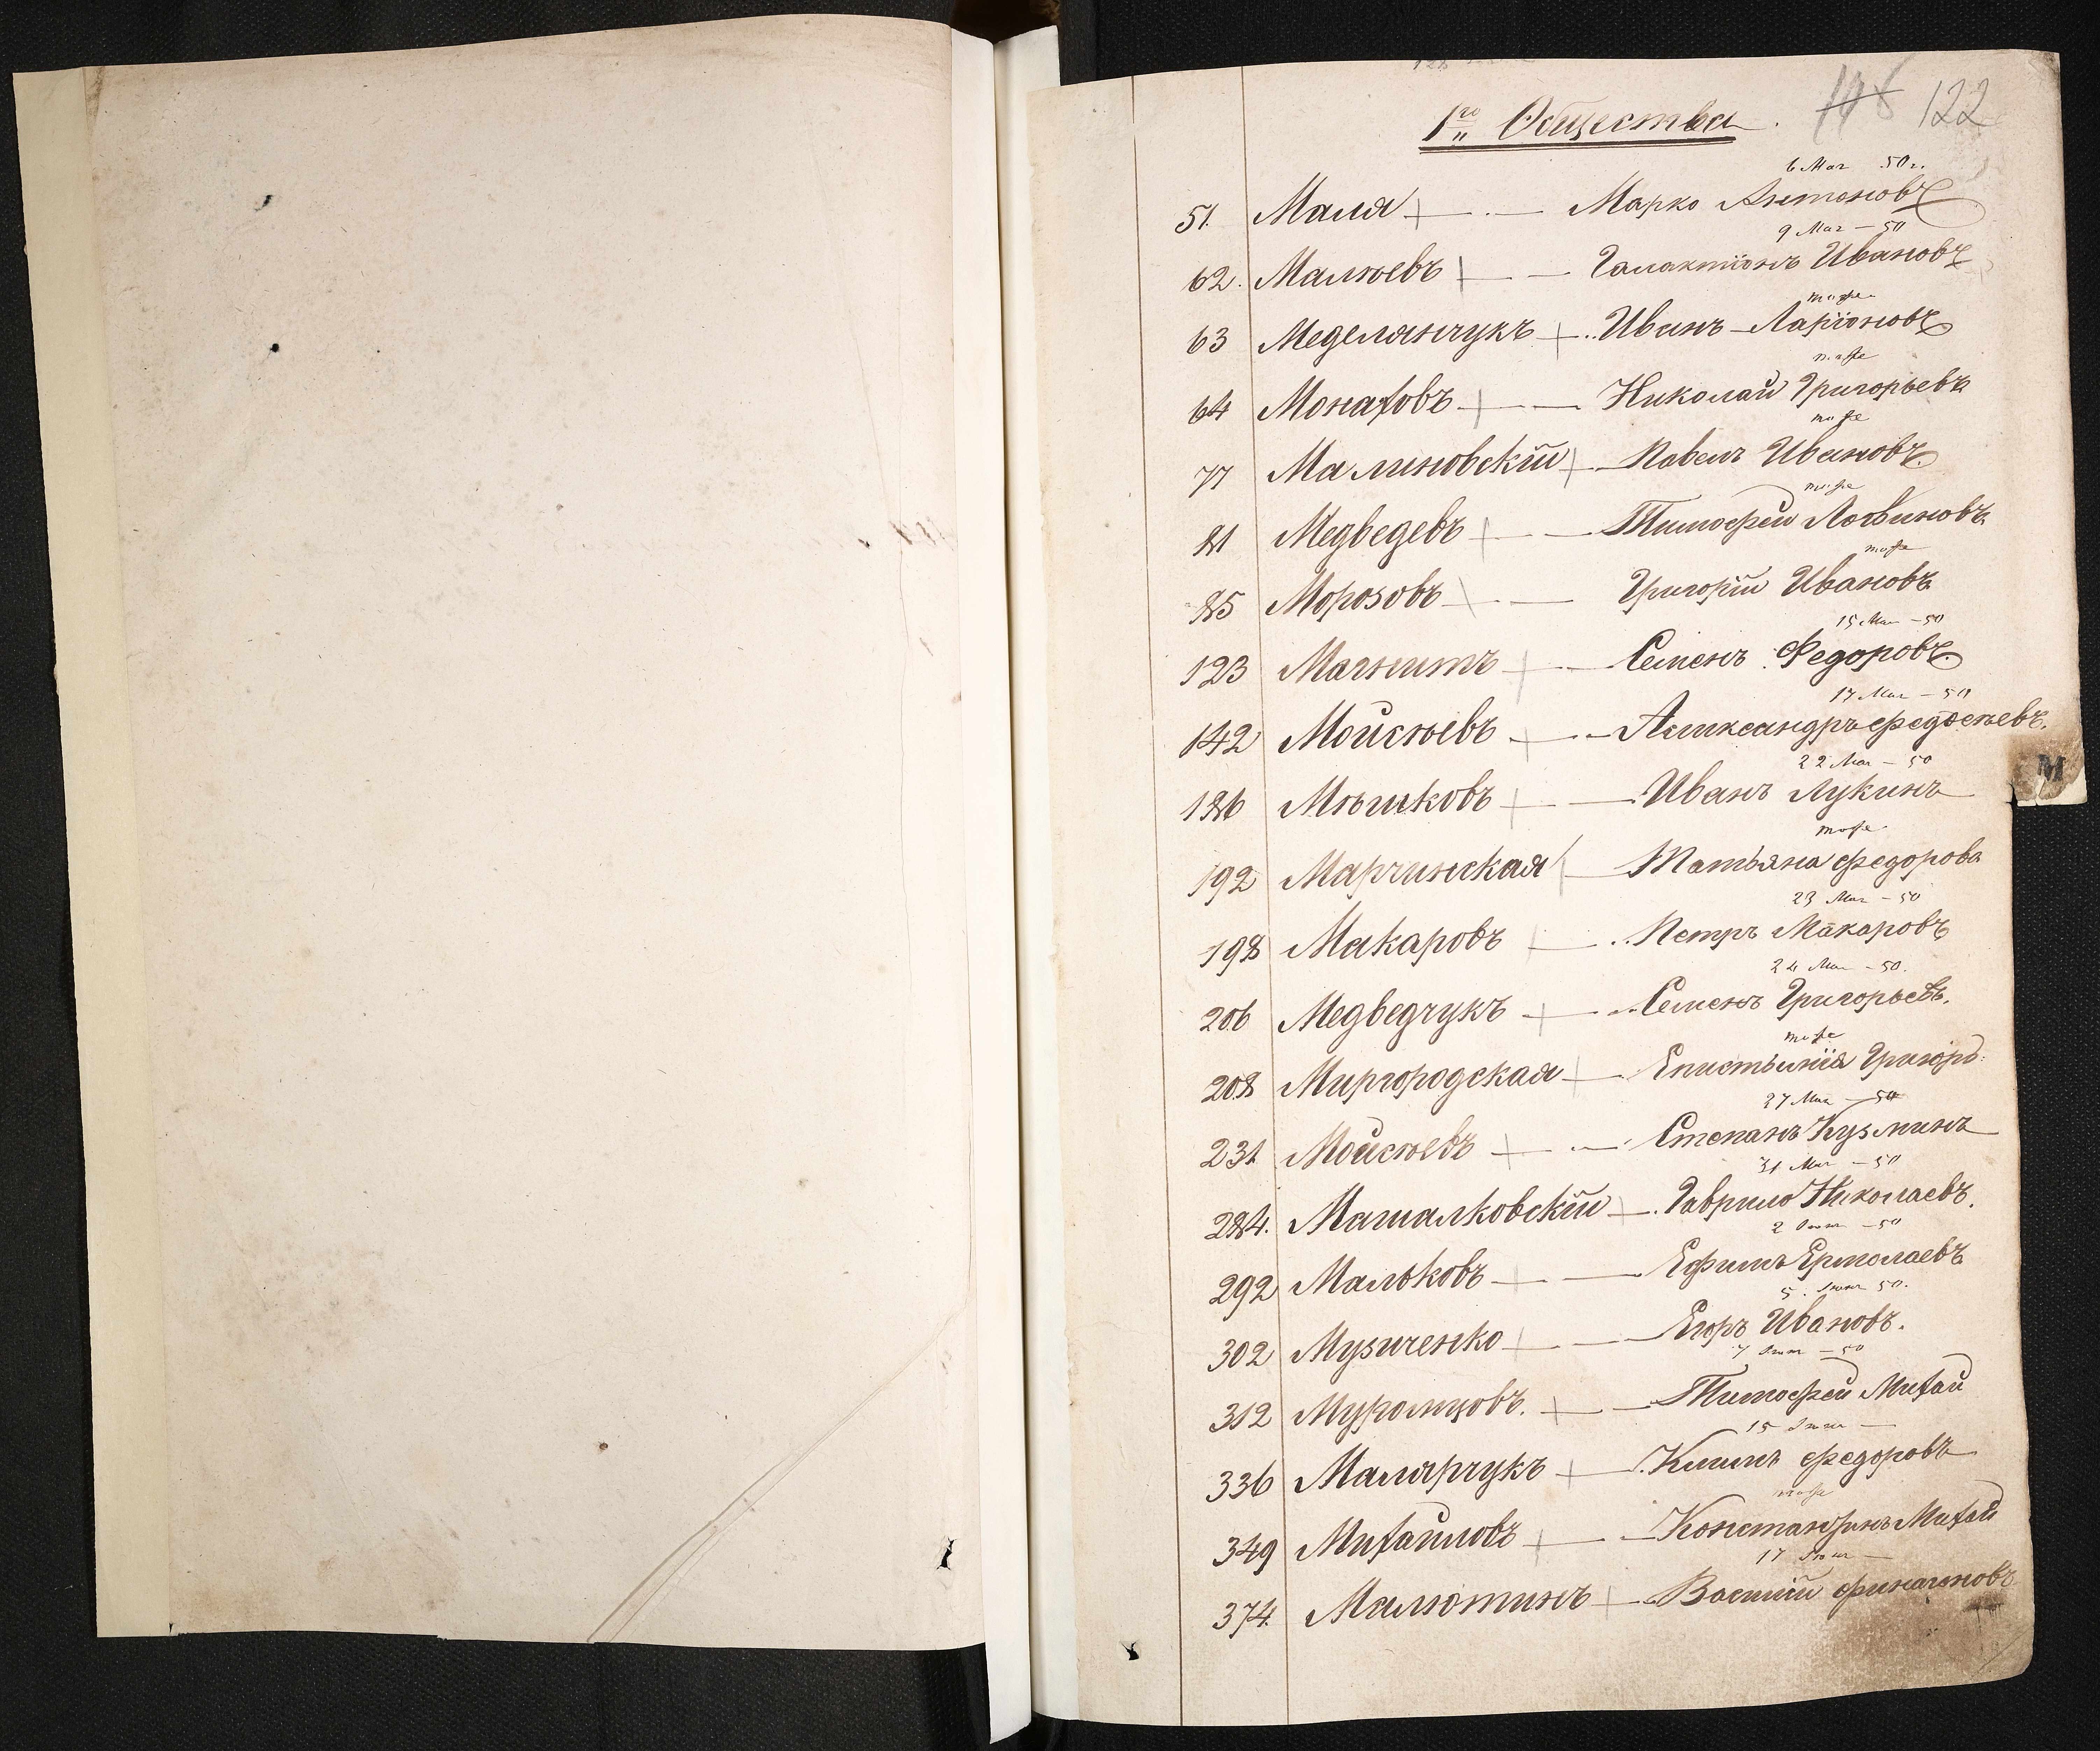 122
1го Общества.
6 Мая 50 г.
51. Маля Марко Антоновъ
9 Мая – 50
62. Малѣевъ Галактіонъ Ивановъ
тоже
63 Меделянчукъ Иванъ Ларіоновъ
тоже
64 Монаховъ Николай Григорьевъ
тоже
77 Малиновскій Павелъ Ивановъ
тоже
81 Медведевъ Тимофей Логвиновъ
тоже
85 Морозовъ Григорій Ивановъ
15 Мая – 50
123 Магнитъ Семенъ Федоровъ
17 Мая – 50
142 Мойсѣевъ Александръ Федосѣевъ.
22 Мая – 50
М
186 Мѣшковъ Иванъ Лукинъ
тоже
192 Марчинская Татьяна Федорова
23 Мая – 50
198 Макаровъ Петръ Макаровъ
24 Мая – 50.
206 Медведчукъ Семенъ Григорьевъ.
тоже
208 Миргородская Епистьмія Григорь:
27 Мая – 50
231 Мойсѣевъ Степанъ Кузминъ
31 Мая – 50
284. Машалковскій Гаврило Николаевъ.
2 – 50
292 Мальковъ Ефимъ Ермолаевъ
5. 50.
302 Музиченко Егоръ Ивановъ.
7 – 50
312 Муромцовъ. Тимофей Михай
15
336 Малярчукъ Климъ Федоровъ
тоже
349 Михайловъ Константинъ Михай
17
374. Малютинъ Васили́й Финагеновъ